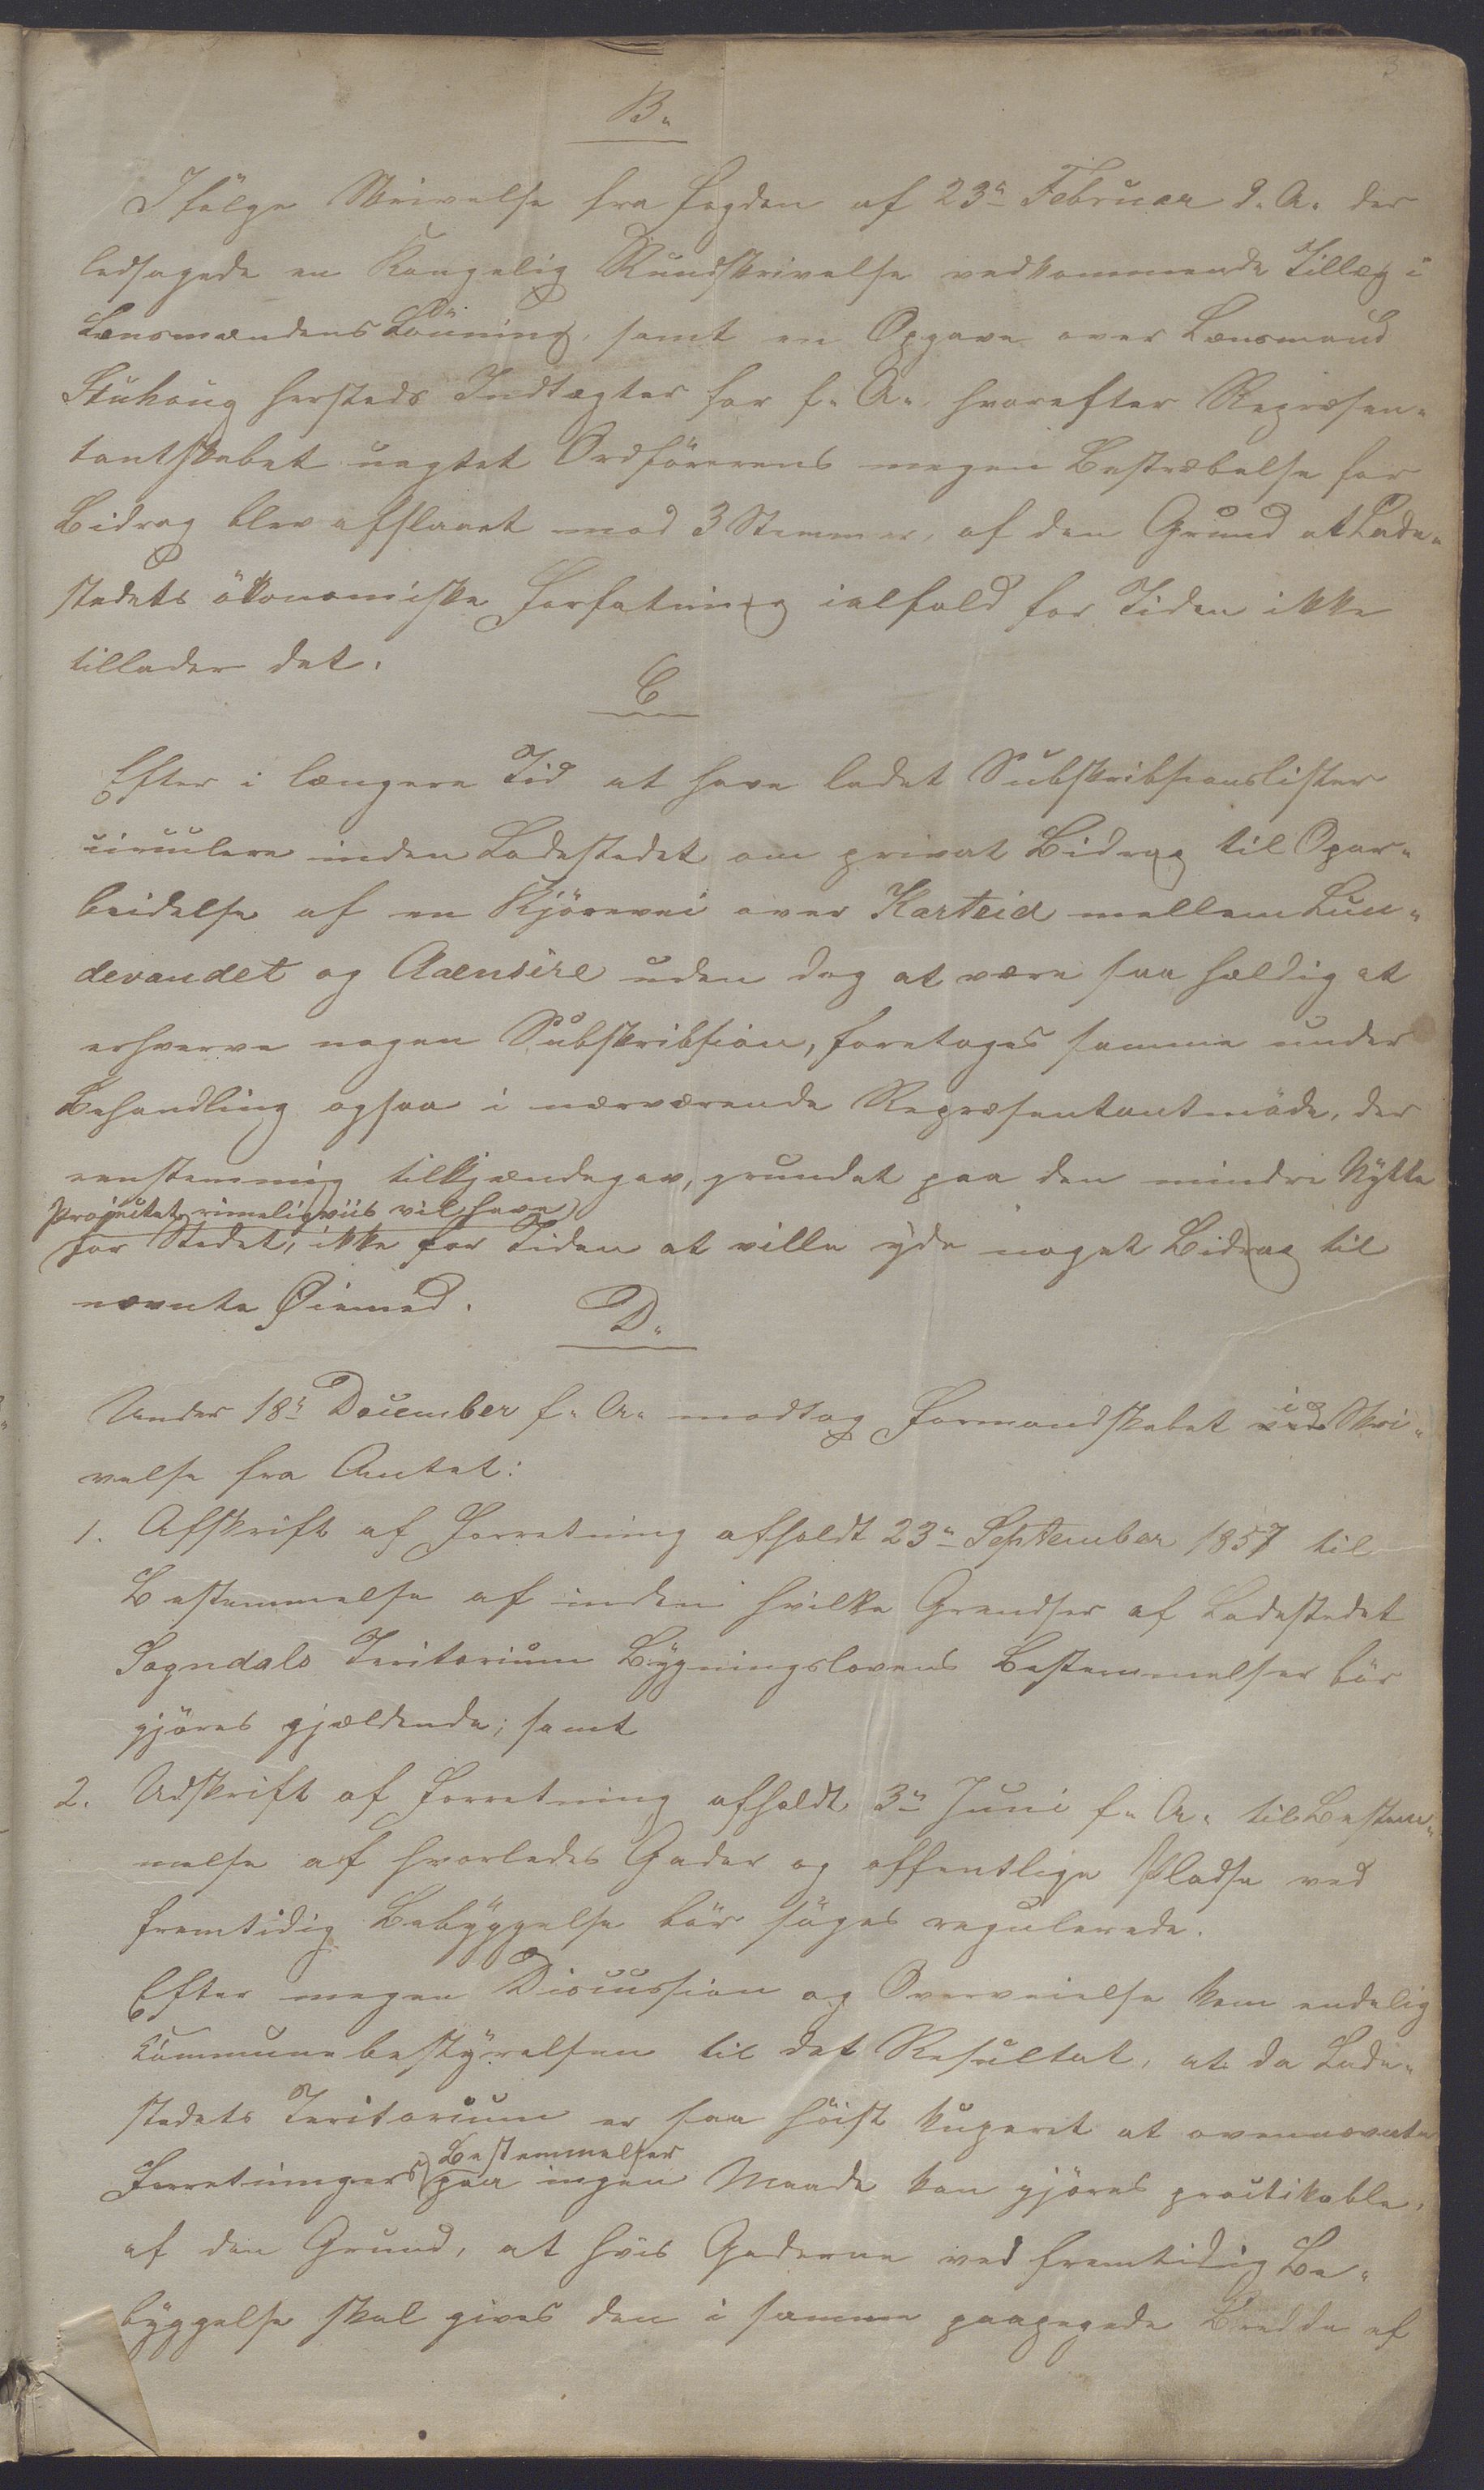 3
B.
Ifølge Skrivelse fra Fogden af 23de Februar d. A. der
ledsagede en Kongelig Rundskrivelse vedkommende Tillæg i
Lensmændens Lønning, samt en Opgave over Lensmand
Stuhoug hersteds Indtægter for f. A. hvorefter Repræsen-
tantskabet uagtet Ordførerens megen Bestræbelse for
Bidrag blev afslaaet mod 3 Stemmer, af den Grund at Lade-
stedets økonomiske Forfatning ialfald for Tiden ikke
tillader det.
C
Efter i længere Tid at have ladet Subskribsionslister
circulere inden Ladestedet om privat Bidrag til Opar-
beidelse af en Kjørevei over Karteid mellem Lun-
devandet og Aaensire uden dog at være saa heldig at
erhverve nogen Subskribsion, foretoges samme under
Behandling ogsaa i nærværende Repræsentantmøde, der
eenstemmig tilkjændegav, grundet paa den mindre Nytte
Projectet rimeligviis vil have
for Stedet, ikke for Tiden at ville yde noget Bidrag til
nævnte Øiemed.
D.
Under 18de December f. A. modtog Formandskabet ved i Skri-
velse fra Amtet:
1. Afskrift af Forretning afholdt 23de September 1857 til
Bestemmelse af inden hvilke Grendser af Ladestedet
Sogndals Teritorium Bygningslovens Bestemmelser bør
gjøres gjældende; samt
2. Udskrift af Forretning afholdt 3de Juni f. A. til Bestem-
melse af hvorledes Gader og offentlige Pladse ved
fremtidig Bebyggelse bør søges regulerede.
Efter megen Discussion og Overveielse kom endelig
Kommunebestyrelsen til det Resultat, at da Lade-
stedets Teritorium er saa høist kuperet at ovennævnte
Bestemmelser
Forretningers paa ingen Maade kan gjøres practikable,
af den Grund, at hvis Gaderne ved fremtidig Be-
byggelse skal gives den i samme paapegede Bredde af